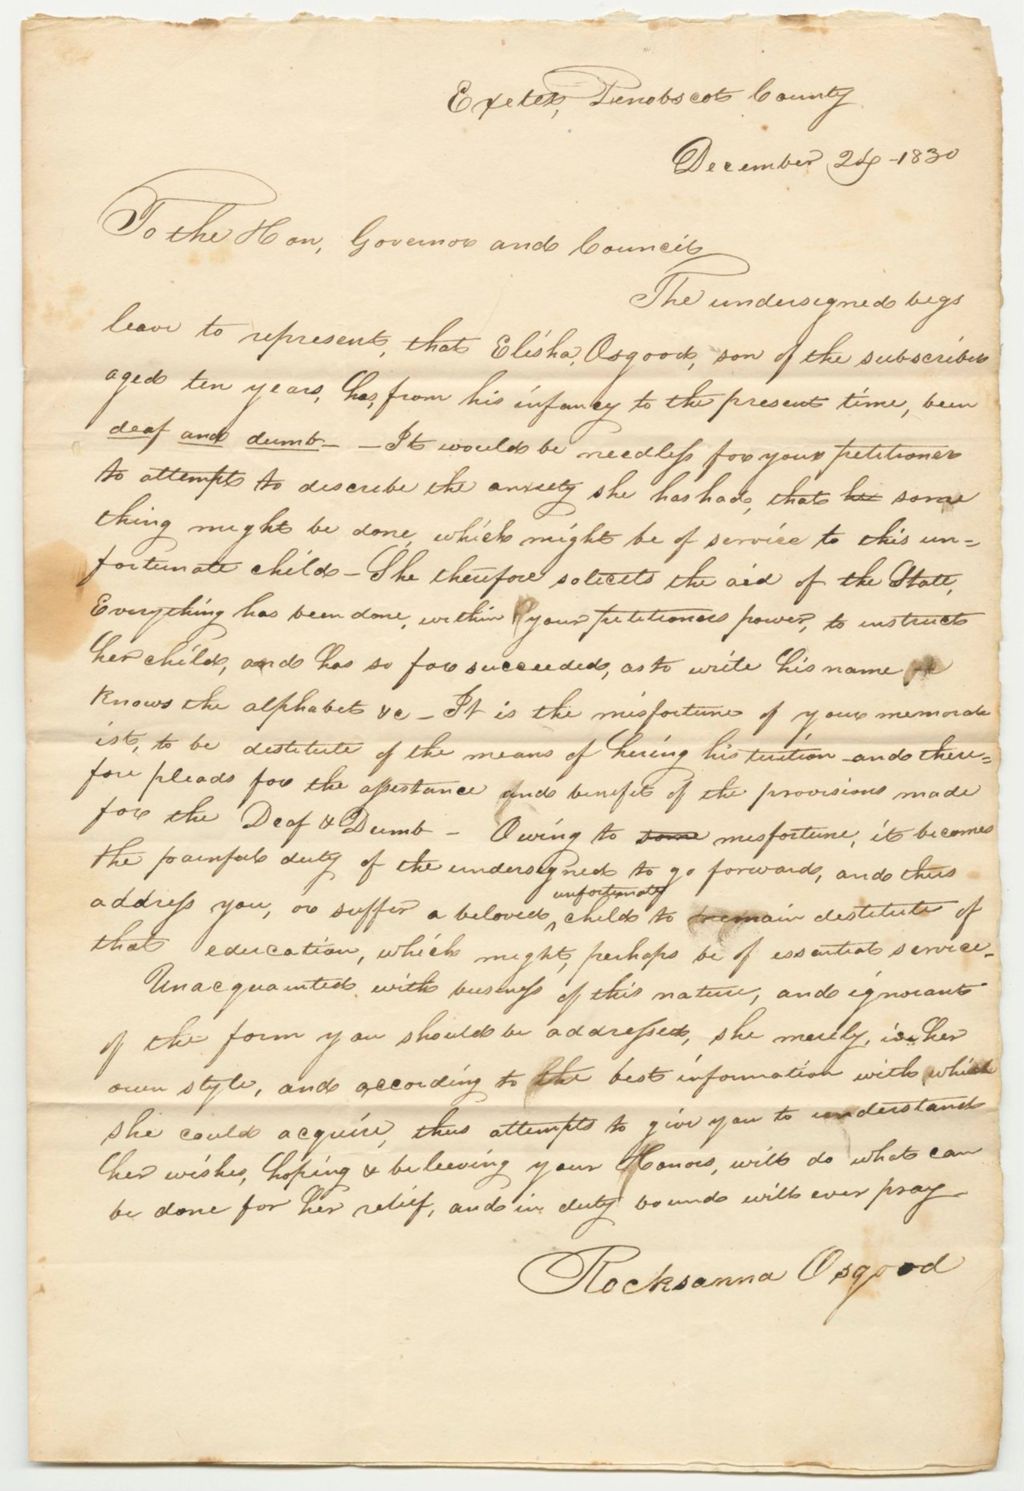 Exeter, Penobscot County
December 24 - 1830
To the Hon, Governor and Council
The undersigned begs
leave to represent, that Elisha, Osgood, son of the subscriber
aged ten years, has, from his infancy to the present time, been
deaf and dumb - - It would be needless for your petitioner
to attempt to describe the anxiety she has had, that his some
thing might be done, which might be of service to this un=
fortunate child - She therefore solicits the aid of the State,
Everything has been done, within your petitioners power, to instruct
her child, and has so far succeeded, as to write his name
knows the alphabet &c - It is the misfortune of your memorial
ist, to be destitute of the means of hiring his tuition - and there=
fore pleads for the assistance and benefit of the provisions made
for the Deaf & Dumb - Owing to some misfortune, it becomes
the painful duty of the undersigned to go forward, and thus
address you, or suffer a beloved, ^ unfortunate child to remain destitute of
that education, which might, perhaps be of essential service -
Unacquainted with business of this nature, and ignorant
of the form you should be addressed, she merely, in her
own style, and according to the best information with which
she could acquire, thus attempts to give you to understand
her wishes, hoping & believing your Honors, will do what can
be done for her relief, and in duty bound will ever pray -
Rocksanna Osgood